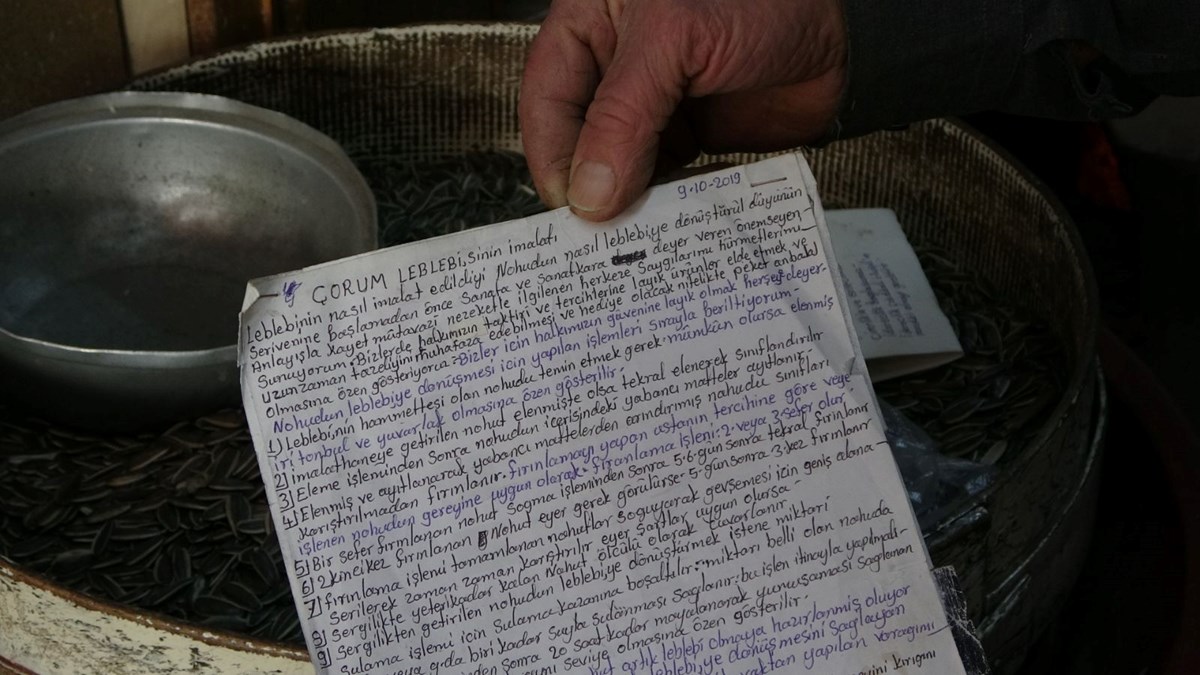 9-10-2019
ÇORUM LEBLEBİ,sinin imalatı
Leblebinin nasıl imalat edildiyi Nohudun nasıl leblebiye dönüştürül düyünün
Serivenine başlamadan önce Sanata ve Sanatkara deyer veren önemseyen
Anlayışla Kayet mütavazi nezeketle ilgilenen herkeze Saygılarımı hürmetlerimi
Sunuyorum. Bizlerde halkımızın taktiri ve tercihlerine layık ürünler elde etmek ve
uzunzaman tazeliyini muhafaza edebilmesi ve hediye olacak nitelikte peket anbalaj
olmasına özen gösteriyoruz. Bizler için halkımızın güvenine layık olmak herşeye deyer.
Nohudun leblebiye dönüşmesi için yapılan işlemleri sırayla beriltiyorum
1) Leblebi,nin hammettesi olan nohudu temin etmek gerek. mümkün olursa elenmiş
iri tonbul ve yuvarlak olmasına özen gösterilir.
2) İmalathaneye getirilen nohut elenmişte olsa tekral elenerek sınıflandırılır
3) Eleme işleminden Sonra nohudun içerisindeki yabancı matteler ayıtlanır
4) Elenmiş ve ayıtlanarak yabancı mattelerden arındırmış nahudu sınıfları
karıştırılmadan fırınlanır. fırınlamayı yapan ustanın tercihine göre veye
işlenen nohudun gereyine uygun olarak. fıranlama işleni: 2. veya 3. sefer olur.
5) Bir sefer fırınlanan nohut Sogma işleminden sonra 5-6 gün sonra tekral fırınlanır
6) 2 kinci kez fırınlanan Nohut eyer gerek görülürse 5-gün sonra 3. kez fırınlanır
7) fırınlama işlemi tamamlanan nohutlar Soguyarak gevşemesi için geniş alana
Serilerek zaman zaman karıştırılır eyer şartlar uygun olursa
8) Sergilikte yeterikadar kalan Nahut ölçülü olarak tuvarlanır.
9) Sergilikten getirilen nohudun leblebiye dönüştürmek istene miktarı
Sulama işlemi için Sulama kazanına boşaltılır. miktarı belli olan nohuda
veya 9-da biri kadar Suyla sulanması Saglanır. bu işlen itinayla yapılmalı
sonra 20 saat kadar mayalanarak yumuşaması saglanan
seviye olmasına özen gösterilir.
artık leblebi olmaya hazırlanmış oluyor
leblebi,ye dönüşmesini Saglayan
yapılan
kırıgını